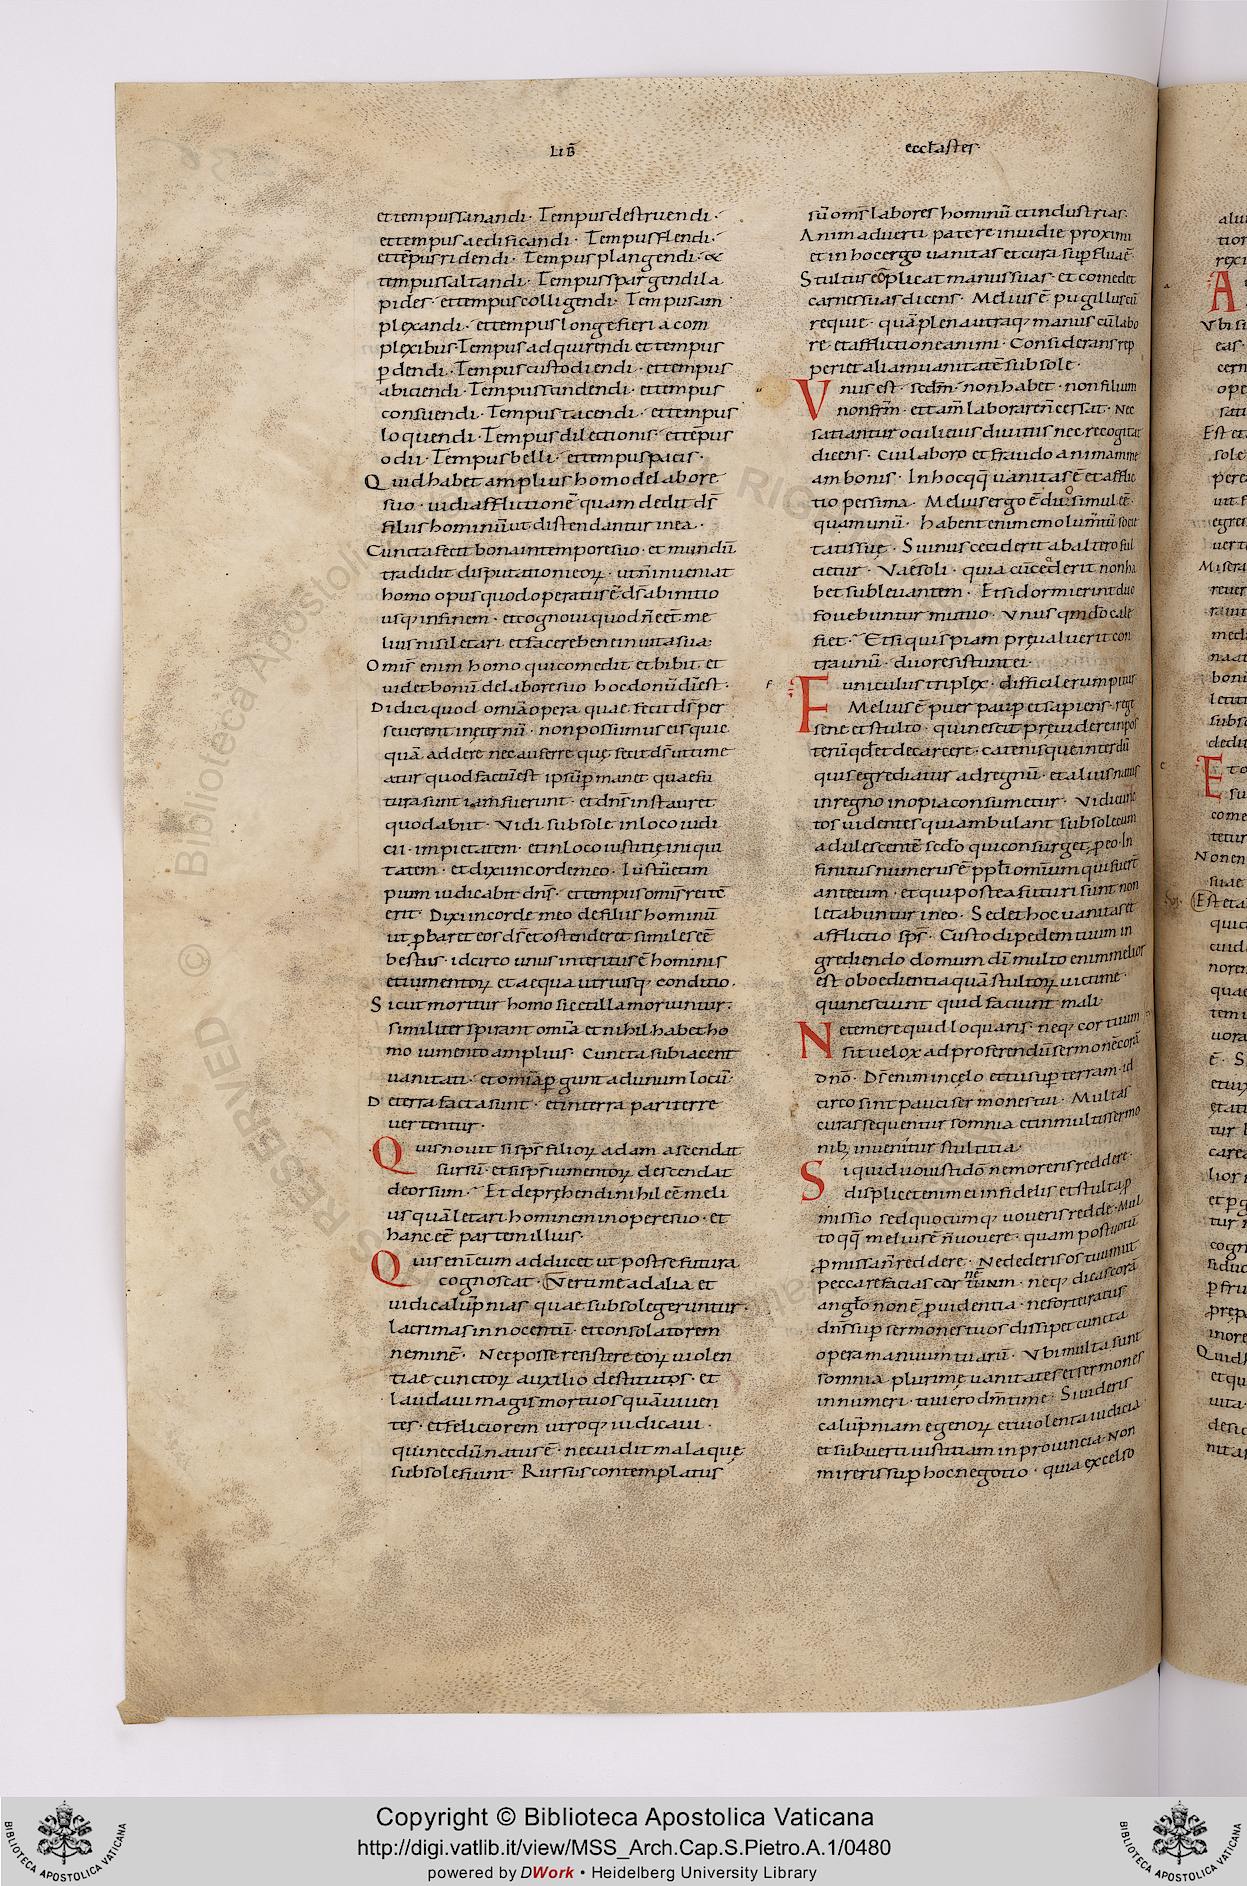 LIB̄
ecclastes
et tempus sanandi · Tempus destruendi ·
et tempus aedificandi · Tempus flendi ·
et tēpus ridendi · Tempus plangendi · &
tempus saltandi · Tempus spargendi la
pides · et tempus colligendi · Tempus am
plexandi · et tempus longe fieri a com
plexibus · Tempus adquirendi et tempus
ꝑdendi · Tempus custodiendi · et tempus
abiciendi · Tempus scindendi · et tempus
consuendi · Tempus tacendi · et tempus
loquendi · Tempus dilectionis · et tēpus
odii · Tempus belli · et tempus pacis ·
Quid habet amplius homo de labore
suo · uidi afflictionē quam dedit d̄s
filiis hominū ut distendantur in ea ·
Cuncta fecit bona in tempore suo · et mundū
tradidit disputationi eoꝝ · ut n̄ inueniat
homo opus quod operatus ē d̄s ab initio
usq; in finem · et cognoui quod n̄ eēt me
lius nisi letari et facere bene in uita sua ·
Omīs enim homo qui comedit et bibit et
uidet bonū de labore suo hoc donū dī est ·
Didici quod omīa opera quae fecit d̄s per
seuerent in ęternū · non possumus eis quic
quā addere nec auferre que fecit d̄s ut time
atur quod factū est ipsū ꝑmanet quae fu
tura sunt iam fuerunt · et dn̄s instauret
quod abiit · Vidi sub sole in loco iudi
cii · impietatem · et in loco iustitię iniqui
tatem · et dixi in corde meo · Iustū et im
pium iudicabit dn̄s · et tempus omīs rei tē
erit · Dixi in corde meo de filiis hominū
ut ꝓbaret eos d̄s et ostenderet similes eē
bestiis · idcirco unus interitus ē hominis
et iumentoꝝ et aequa utriusq; conditio ·
Sicut moritur homo sic et illa moriuntur ·
similiter spirant omīa et nihil habet ho
mo iumento amplius · Cuncta subiacent
uanitati · et omīa ꝑgunt ad unum locū ·
De terra facta sunt · et in terra pariter re
uertentur ·
Quis nouit si sp̄s filioꝝ adam ascendat
sursū · et si sp̄s iumentoꝝ descendat
deorsum · Et deprehendi nihil eē meli
us quā letari hominem in opere suo · et
hanc eē partem illius ·
Quis enī eum adducet ut post se futura
cognoscat · Verti me ad alia et
uidi calūpnias quae sub sole geruntur ·
lacrimas innocentū · et consolatorem
neminē · Nec posse resistere eoꝝ uiolen
tiae cunctoꝝ auxilio destitutos · et
laudaui magis mortuos quā uiuen
tes · et feliciorem utroq; iudicaui ·
qui necdū natus ē · nec uidit mala que
sub sole fiunt · Rursus contemplatus
sū oms̄ labores hominū et industrias ·
Animaduerti patere inuidie proximi
et in hoc ergo uanitas et cura suꝑflua ē ·
Stultus cōplicat manus suas · et comedet
carnes suas dicens · Melius ē pugillus cū
requie · quā plena utraq; manus cū labo
re et afflictione animi · Considerans rep
peri et aliam uanitatē sub sole ·
Vnus est · secdm̄ · non habet · non filium
non frm̄ · et tam̄ laborare n̄ cessat · Nec
satiantur oculi eius diuitiis nec recogitat
dicens · Cui laboro et fraudo animam me
am bonis · In hoc qq̄ uanitas ē et afflic
tio pessima · Melius ergo ē duos simul eē ·
quam unū · habent enim emolumtū socie
tatis suę · Si unus ceciderit ab altero ful
cietur · Vae soli · quia cū ceciderit non ha
bet subleuantem · Et si dormierint duo
fouebuntur mutuo · Vnus qmd̄o cale
fiet · Et si quispiam preualuerit con
tra unū · duo resistunt ei ·
Funiculus triplex · difficile rumpitur
Melius ē puer paup̄ et sapiens · rege
sene et stulto · qui nescit preuidere in pos
terū · qd̄ et de carcere · catenisque interdū
quis egrediatur ad regnū · et alius natus
in regno inopia consumetur · Vidi cunc
tos uidentes qui ambulant sub sole cum
adulescente scdo qui consurget ꝓ eo · In
finitus numerus ē ppl̄i omium qui fuert̄
ante eum · et qui postea futuri sunt non
letabuntur in eo · Sed et hoc uanitas et
afflictio sp̄s · Custodi pedem tuum in
grediendo domum dī multo enim melior
est oboedientia quā stultoꝝ uictime ·
qui nesciunt quid faciunt mali
Ne temere quid loquaris · neq; cor tuum
sit uelox ad proferendū sermonē corā
dn̄o · D̄s enim in cęlo et tu suꝑ terram · id
circo sint pauci sermones tui · Multas
curas sequentur somnia et in multis sermo
nib; inuenitur stultitia ·
Si quid uouisti dō ne moreris reddere ·
displicet enim ei infidelis et stulta ꝓ
missio sed quocumq; uoueris redde · Mul
to qq̄ melius ē n̄ uouere · quam post uotū
ꝓmissa n̄ reddere · Ne dederis os tuum ut
peccare facias car nē tuam · neq; dicas corā
angl̄o non ē ꝓuidentia · ne forte iratus
dn̄s suꝑ sermones tuos dissipet cuncta
opera manuum tuarū · Vbi multa sunt
somnia plurimę uanitates et sermones
innumeri · tu uero dm̄ time · Si uideris
calūpniam egenoꝝ et uiolenta iudicia
et subuerti iustitiam in prouincia · Non
mireris suꝑ hoc negotio · quia excelso
Copyright © Biblioteca Apostolica Vaticana
http://digi.vatlib.it/view/MSS_Arch.Cap.S.Pietro.A.1/0480
powered by DWork • Heidelberg University Library
BIBLIOTECA APOSTOLICA VATICANA
BIBLIOTECA APOSTOLICA VATICANA